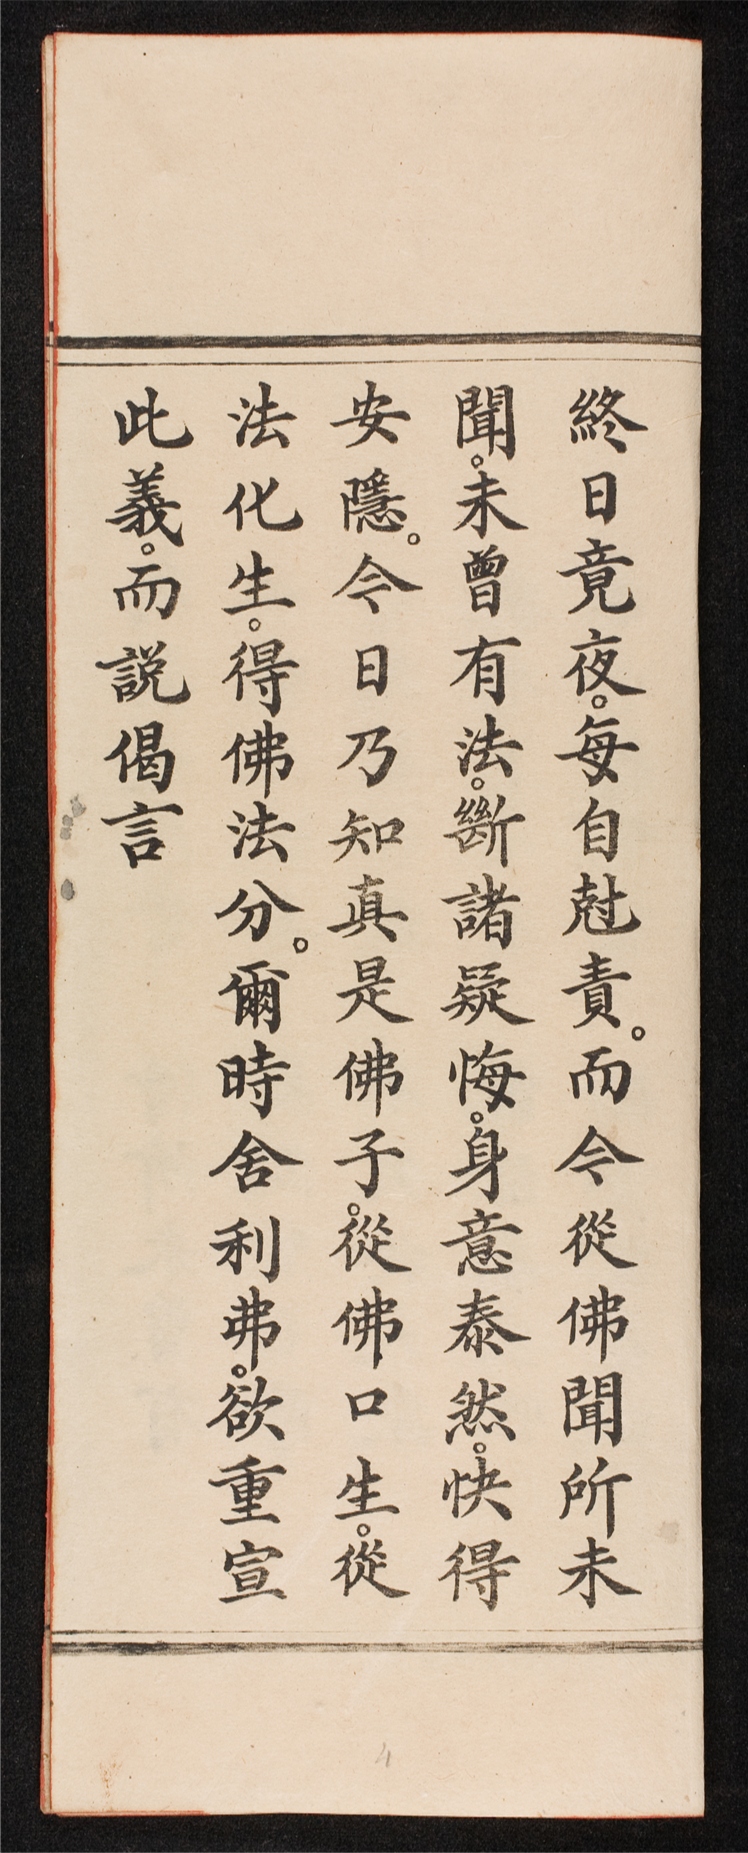 終日竟夜。每自尅責。而今從佛聞所未
聞。未曾有法。斷諸疑悔。身意泰然。快得
安隱。今日乃知真是佛子。從佛口生。從
法化生。得佛法分。爾時舍利弗。欲重宣
此義。而說偈言
4